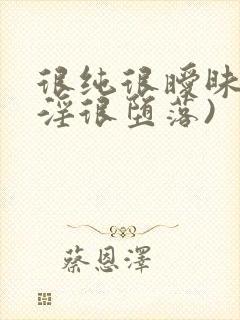 很纯很暧昧
淫很堕落)
蔡恩澤